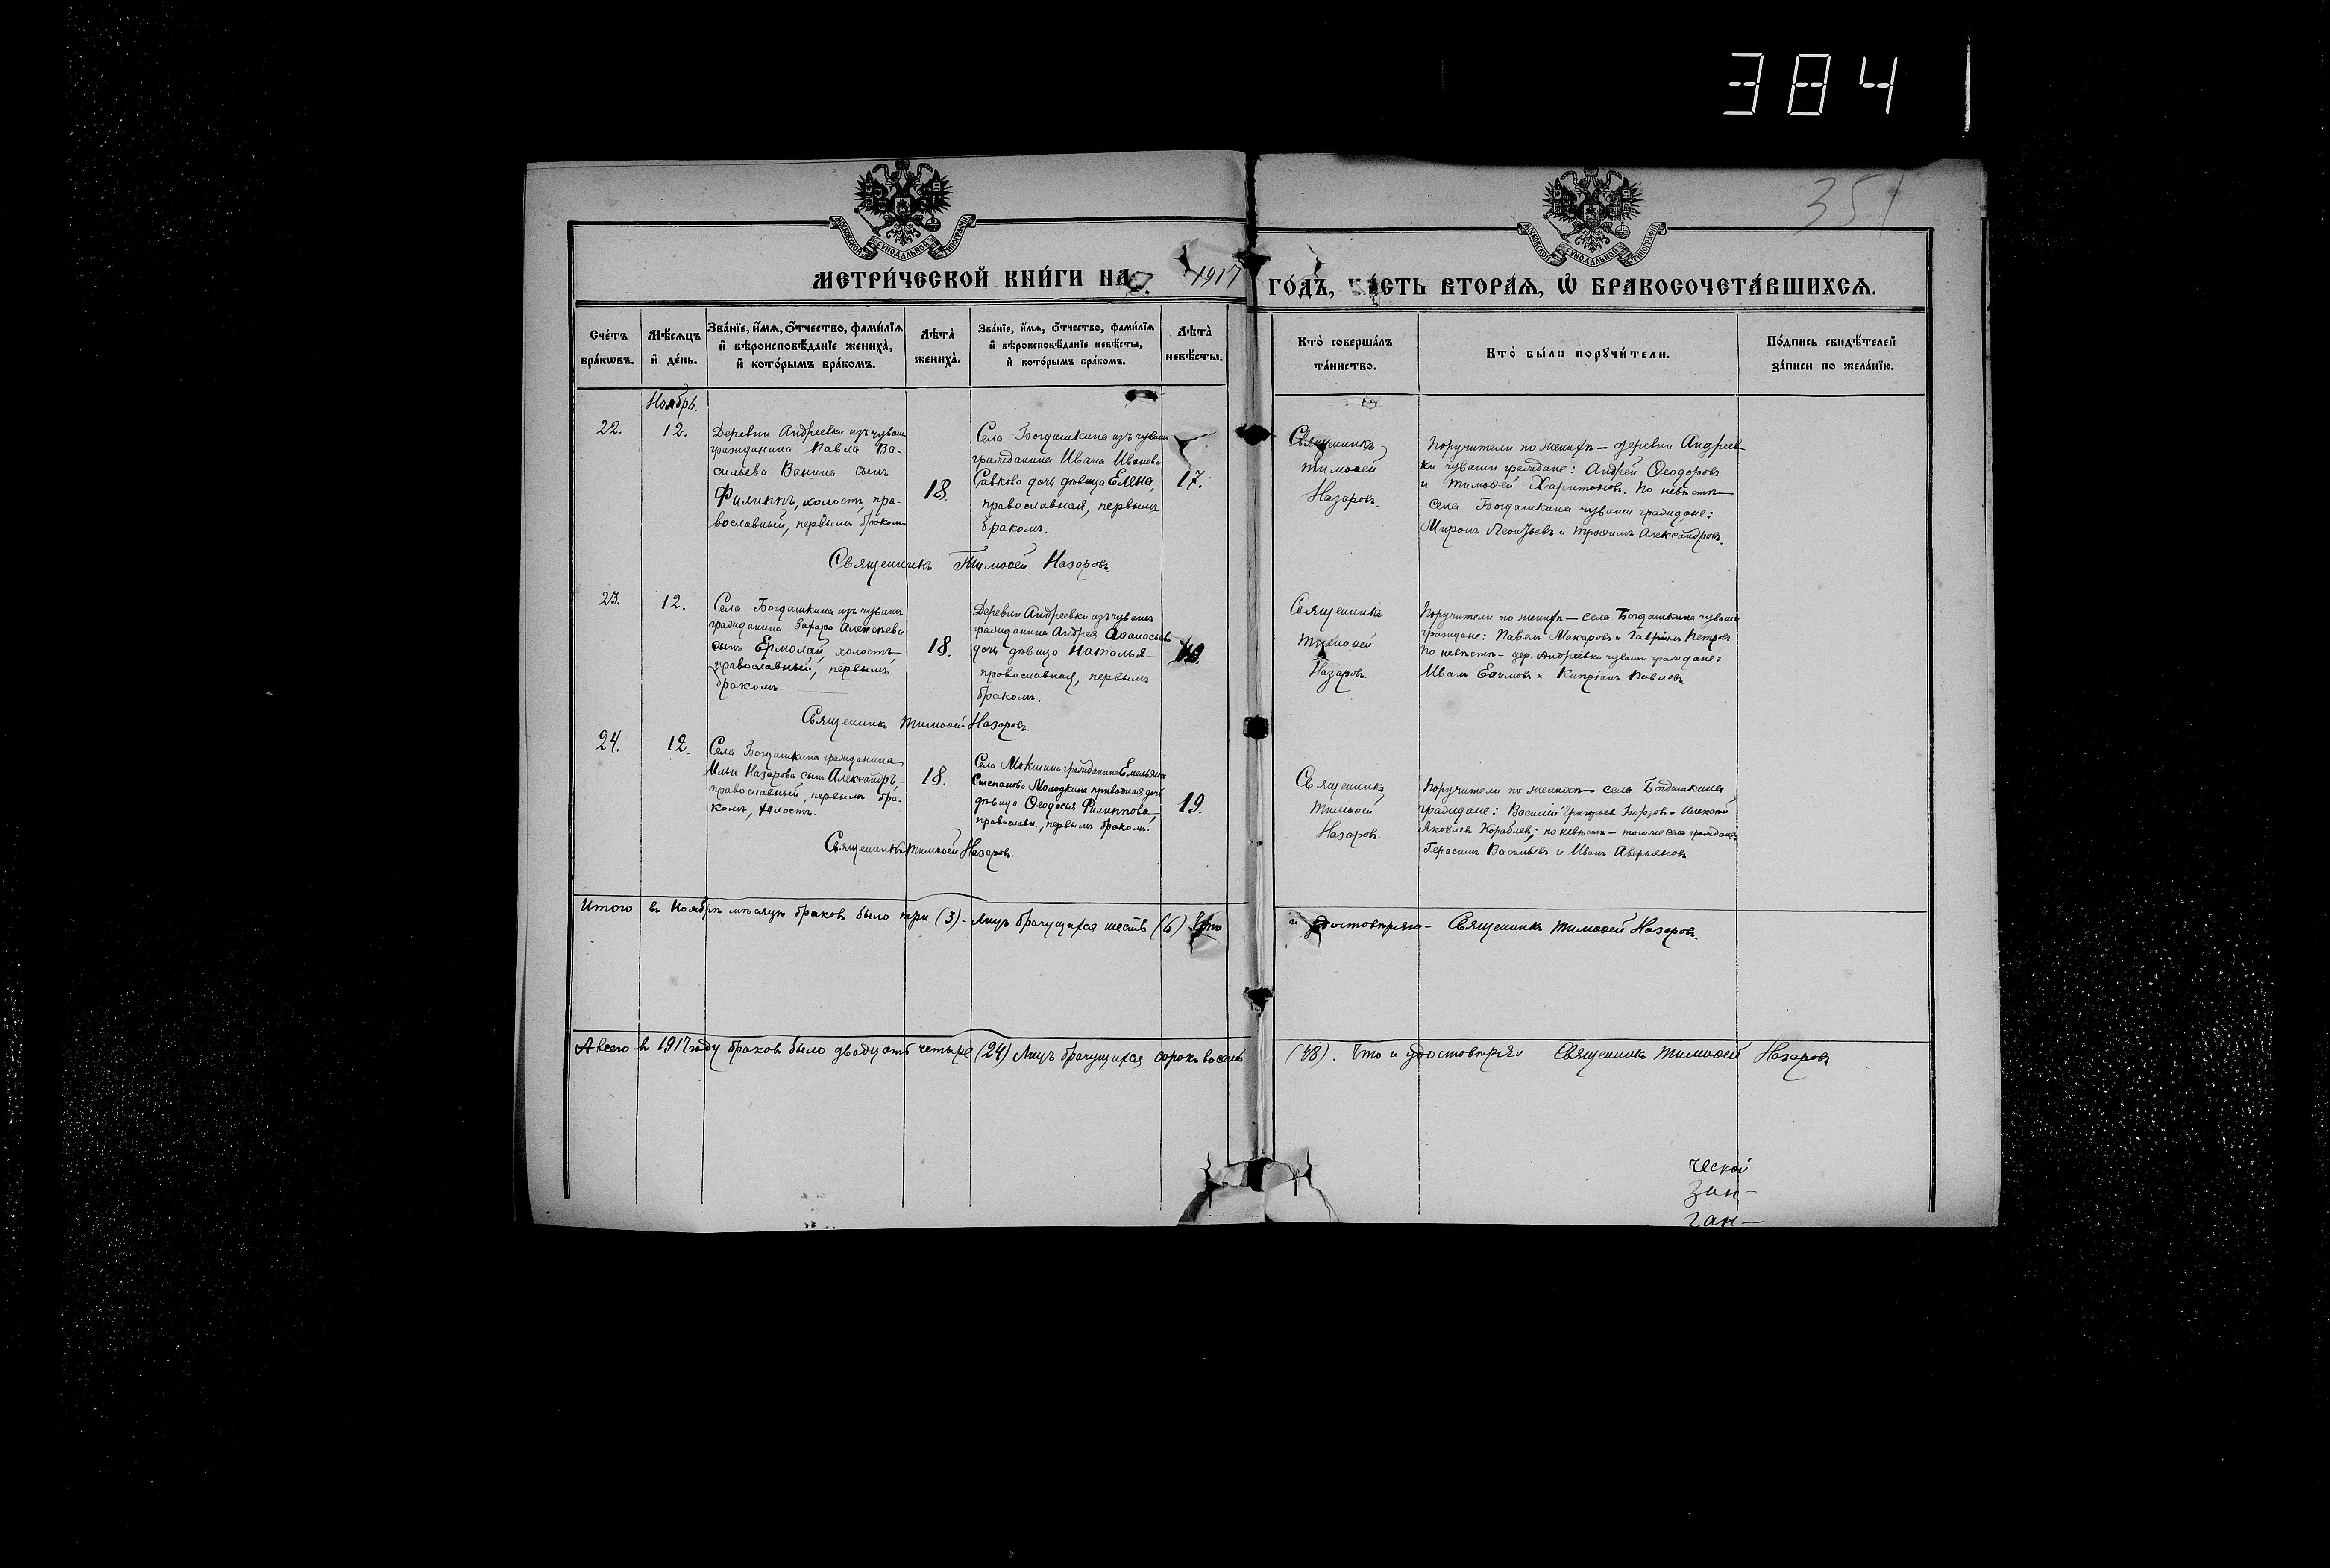 384
351
МОСКОВСКОЙ СѴНОДАЛЬНОЙ ТИПОГРАФІИ
МОСКОВСКОЙ СѴНОДАЛЬНОЙ ТИПОГРАФІИ
МЕТРИ́ЧЕСКОЙ КНИ́ГИ НА 1917 ГО́ДЪ, ЧА́СТЬ ВТОРА́Ѧ, Ѡ БРАКОСОЧЕТА́ВШИХСѦ.
Сче́тъ
бра́кѡвъ.
Мѣ́сѧцъ
и҆ де́нь.
Зва́нїе, и҆́мѧ, ѻ҆́тчество, фами́лїѧ
и҆ вѣроисповѣ́данїе жениха̀,
и҆ кото́рымъ бра́комъ.
Лѣ́та̀
жениха̀.
Зва́нїе, и҆́мѧ, ѻ҆́тчество, фами́лїѧ
и҆ вѣроисповѣ́данїе невѣ́сты,
и҆ кото́рымъ бра́комъ.
Лѣ́та̀
невѣ́сты.
Кто̀ соверша́лъ
та́инство.
Кто̀ бы́ли порꙋчи́тели.
По́дпись свидѣ́телей
за́писи по жела́нїю.
Ноябрь.
22.
12.
Деревни Андреевки изъ чувашъ
гражданина Павла Ва-
сильева Ванина сынъ
Филиппъ, холостъ, пра-
вославный, первымъ бракомъ
18.
Села Богдашкина изъ чувашъ
гражданина Ивана Иванова
Савкова дочь дѣвица Елена,
православная, первымъ
бракомъ.
17.
Священникъ
Тимоѳей
Назаровъ.
Поручители по женихѣ — деревни Андреев-
ки чуваши граждане: Андрей Ѳеодоровъ
и Тимоѳей Харитоновъ. По невѣстѣ —
села Богдашкина чуваши граждане:
Миронъ Леонтьевъ и Трофимъ Александровъ.
Священникъ Тимоѳей Назаровъ.
23.
12.
Села Богдашкина изъ чувашъ
гражданина Захара Алексѣева
сынъ Ермолай, холостъ
православный, первымъ
бракомъ.
18.
Деревни Андреевки изъ чувашъ
гражданина Андрея Аѳанасьева
дочь дѣвица Наталья
православная, первымъ
бракомъ.
Священникъ
Тимоѳей
Назаровъ.
Поручители по женихѣ — села Богдашкина чуваши
граждане: Павелъ Макаровъ и Гавріилъ Петровъ.
По невѣстѣ — дер. Андреевки чуваши граждане:
Иванъ Ефимовъ и Кипріанъ Павловъ.
Священникъ Тимоѳей Назаровъ.
24.
12.
Села Богдашкина гражданина
Ильи Назарова сынъ Александръ,
православный, первымъ бра-
комъ, холостъ.
18.
Села гражданина Емельяна
Степанова Молодкина дочь
дѣвица Ѳеодосія Филиппова,
православн., первымъ бракомъ.
19.
Священникъ
Тимоѳей
Назаровъ.
Поручители по женихѣ — села Богдашкина
граждане: Василій Григорьевъ и Алексѣй
Яковлевъ Кораблевъ; по невѣстѣ — того же села граждане:
Герасимъ Васильевъ и Иванъ Аверьяновъ.
Священникъ Тимоѳей Назаровъ.
Итого въ Ноябрѣ мѣсяцѣ браковъ было три (3). Лицъ брачущихся шесть (6) Что и удостовѣряю — Священникъ Тимоѳей Назаровъ.
А всего въ 1917 году браковъ было двадцать четыре (24) Лицъ брачущихся сорокъ восемь (48). Что и удостовѣряю Священникъ Тимоѳей Назаровъ
ческой
зан-
ган-